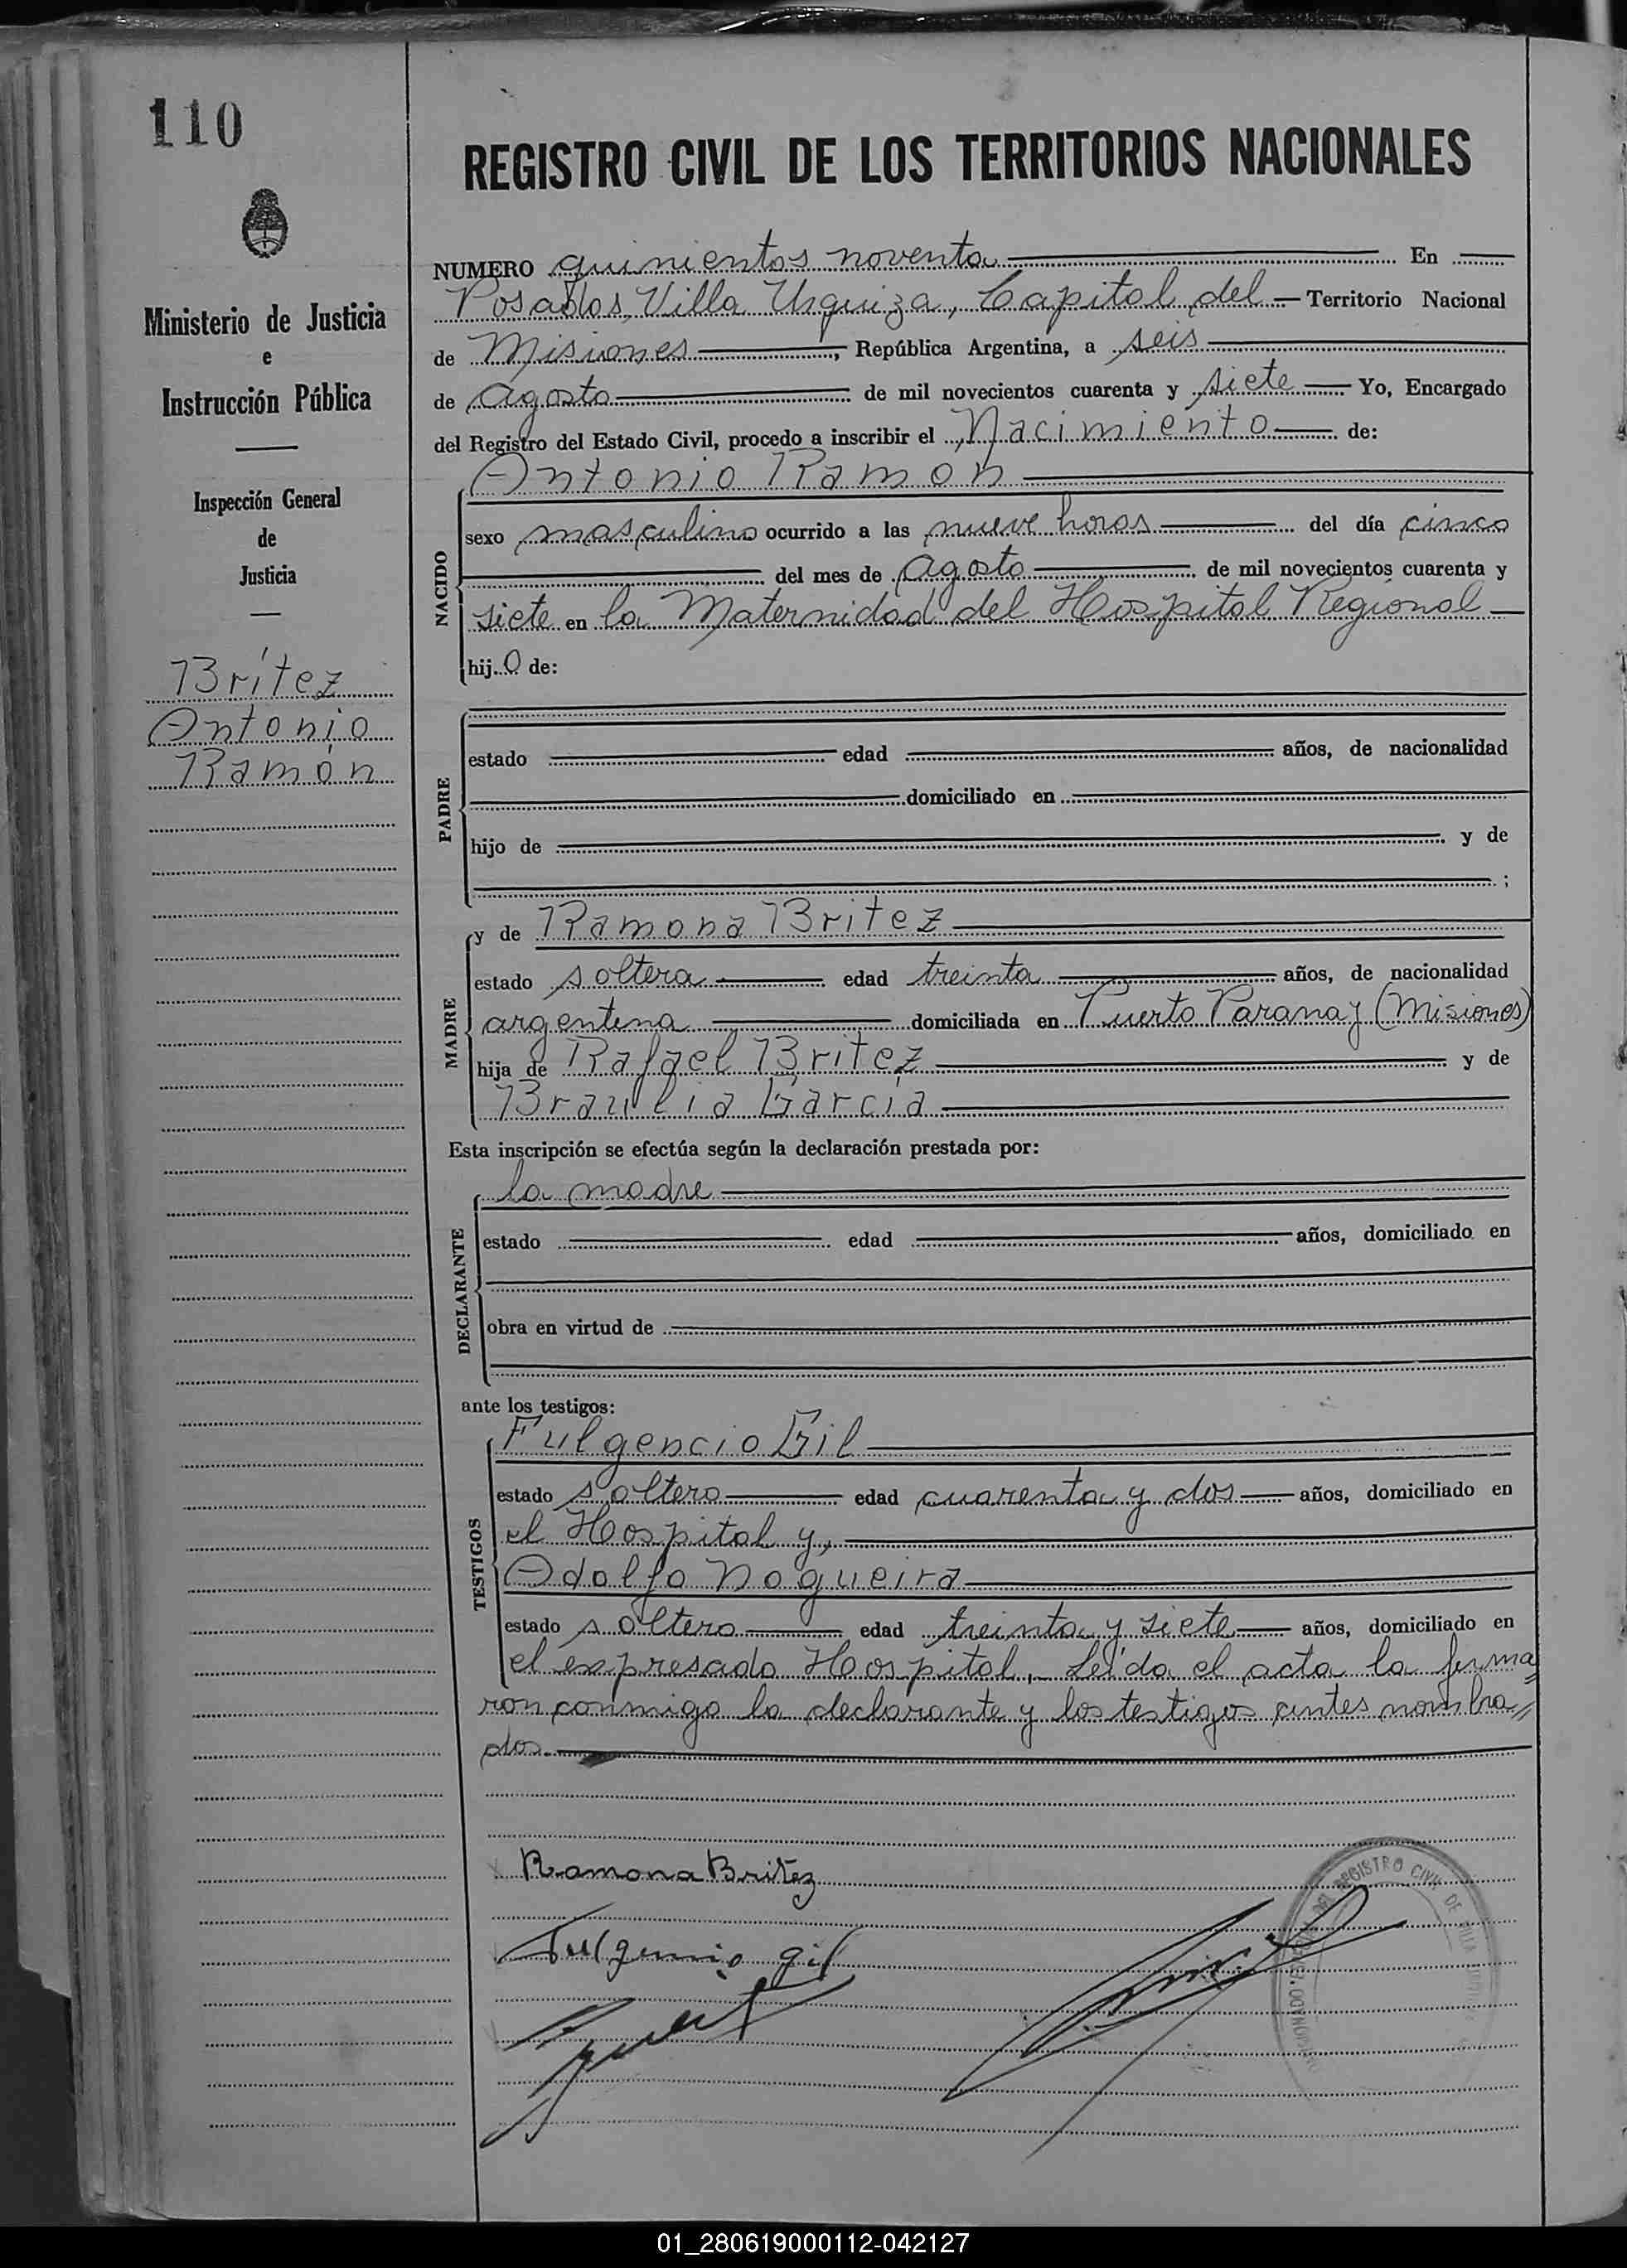 110
REGISTRO CIVIL DE LOS TERRITORIOS NACIONALES
Ministerio de Justicia
e
Instrucción Pública
Inspección General
de
Justicia
Brítez
Antonio
Ramón
NUMERO quinientos noventa En
Posadas, Villa Urquiza, Capital del Territorio Nacional
de Misiones, República Argentina, a seis
de agosto de mil novecientos cuarenta y siete Yo, Encargado
del Registro del Estado Civil, procedo a inscribir el Nacimiento de:
NACIDO
Antonio Ramón
sexo masculino ocurrido a las nueve horas del día cinco
del mes de agosto de mil novecientos cuarenta y
siete en la Maternidad del Hospital Regional
hijo de:
PADRE
estado edad años, de nacionalidad
domiciliado en
hijo de y de
;
MADRE
y de Ramona Britez
estado soltera edad treinta años, de nacionalidad
argentina domiciliada en Puerto Paranay (Misiones)
hija de Rafael Britez y de
Braulia García
Esta inscripción se efectúa según la declaración prestada por:
DECLARANTE
la madre
estado edad años, domiciliado en
obra en virtud de
ante los testigos:
TESTIGOS
Fulgencio Gil
estado soltero edad cuarenta y dos años, domiciliado en
el Hospital y,
Adolfo Nogueira
estado soltero edad treinta y siete años, domiciliado en
el expresado Hospital. Leída el acta la firma
ron conmigo la declarante y los testigos antes nombra
dos.
Ramona Britez
Fulgencio gil
REGISTRO CIVIL DE VILLA
01_280619000112-042127